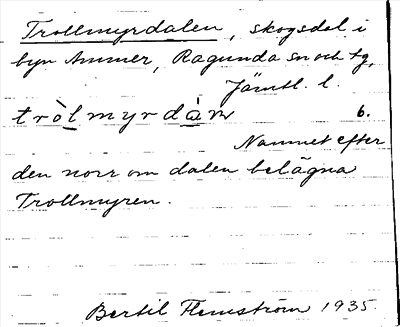 Trollmyrdalen, skogsdel i
byn Ammer, Ragunda sn och tg,
Jämtl. l.
tròlmyrdàn 6.
Namnet efter
den norr om dalen belägna
Trollmyren.
Bertil Flemström 1935.